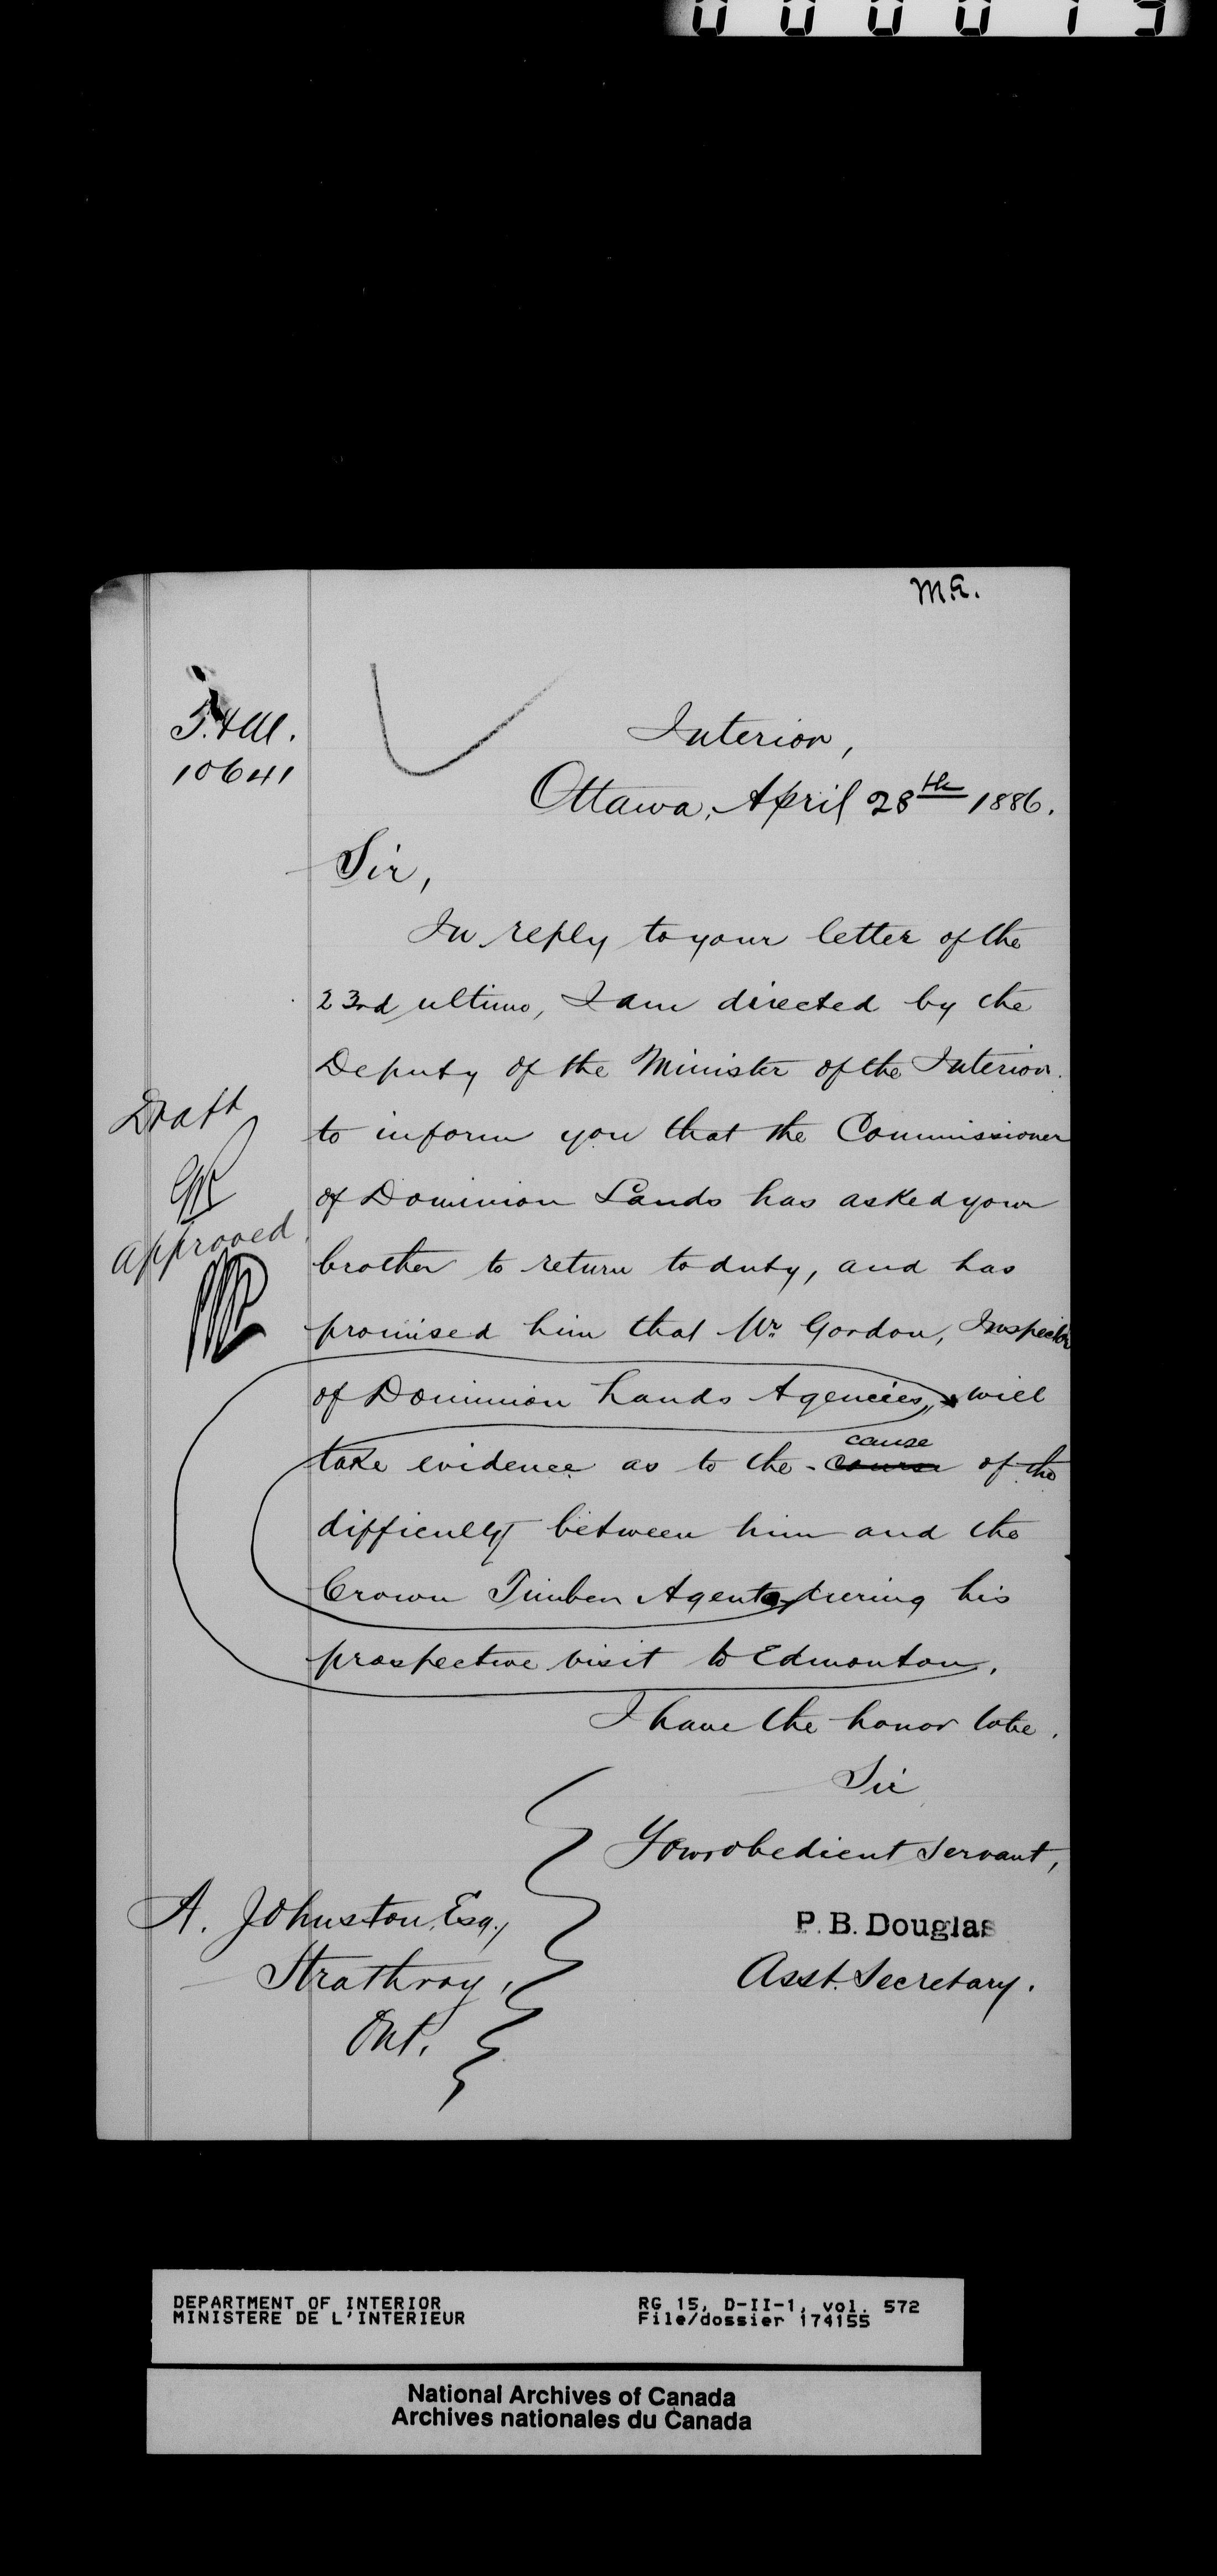 000019
M.E.
T.&M.
10641
Interior,
Ottawa, April 28th 1886.
Sir,
In reply to your letter of the
23rd ultimo, I am directed by the
Deputy of the Minister of the Interior
to inform you that the Commissioner
of Dominion Lands has asked your
brother to return to duty, and has
promised him that Mr. Gordon, Inspector
of Dominion Lands Agencies, will
cause
take evidence as to the course of the
difficulty between him and the
Crown Timber Agent during his
prospective visit to Edmonton.
Draft
Approved
I have the honor to be,
Sir
Your obedient servant,
P. B. Douglas
Asst. Secretary.
A. Johnston, Esq.,
Strathroy,
Ont.
DEPARTMENT OF INTERIOR
MINISTERE DE L'INTERIEUR
RG 15, D-II-1, vol. 572
File/dossier 174155
National Archives of Canada
Archives nationales du Canada